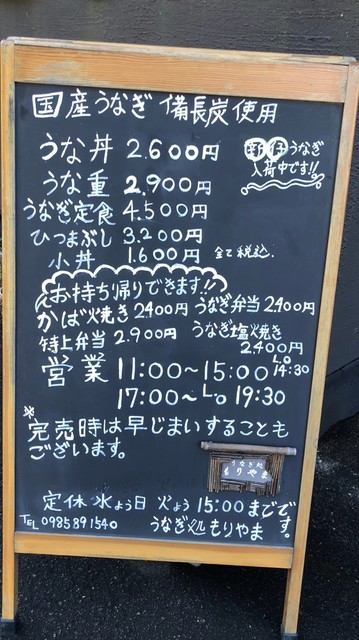 国産うなぎ 備長炭使用
うな丼 2.600円
うな重 2,900円
うなぎ定食 4.500円
ひつまぶし 3.200円
小丼 1.600円 全て税込.
新仔うなぎ
入荷中です!!
お持ち帰りできます!!
かば焼き 2400円 うなぎ弁当 2.400円
特上弁当 2.900円 うなぎ塩焼き
2.400円
営業 11:00~15:00 Lo 14:30
17:00~Lo 19:30
※完売時は早じまいすることも
ございます。
うなぎ処
もりやま
定休 水よう日 火よう 15:00までです。
TEL 0985891540 うなぎ処 もりやま